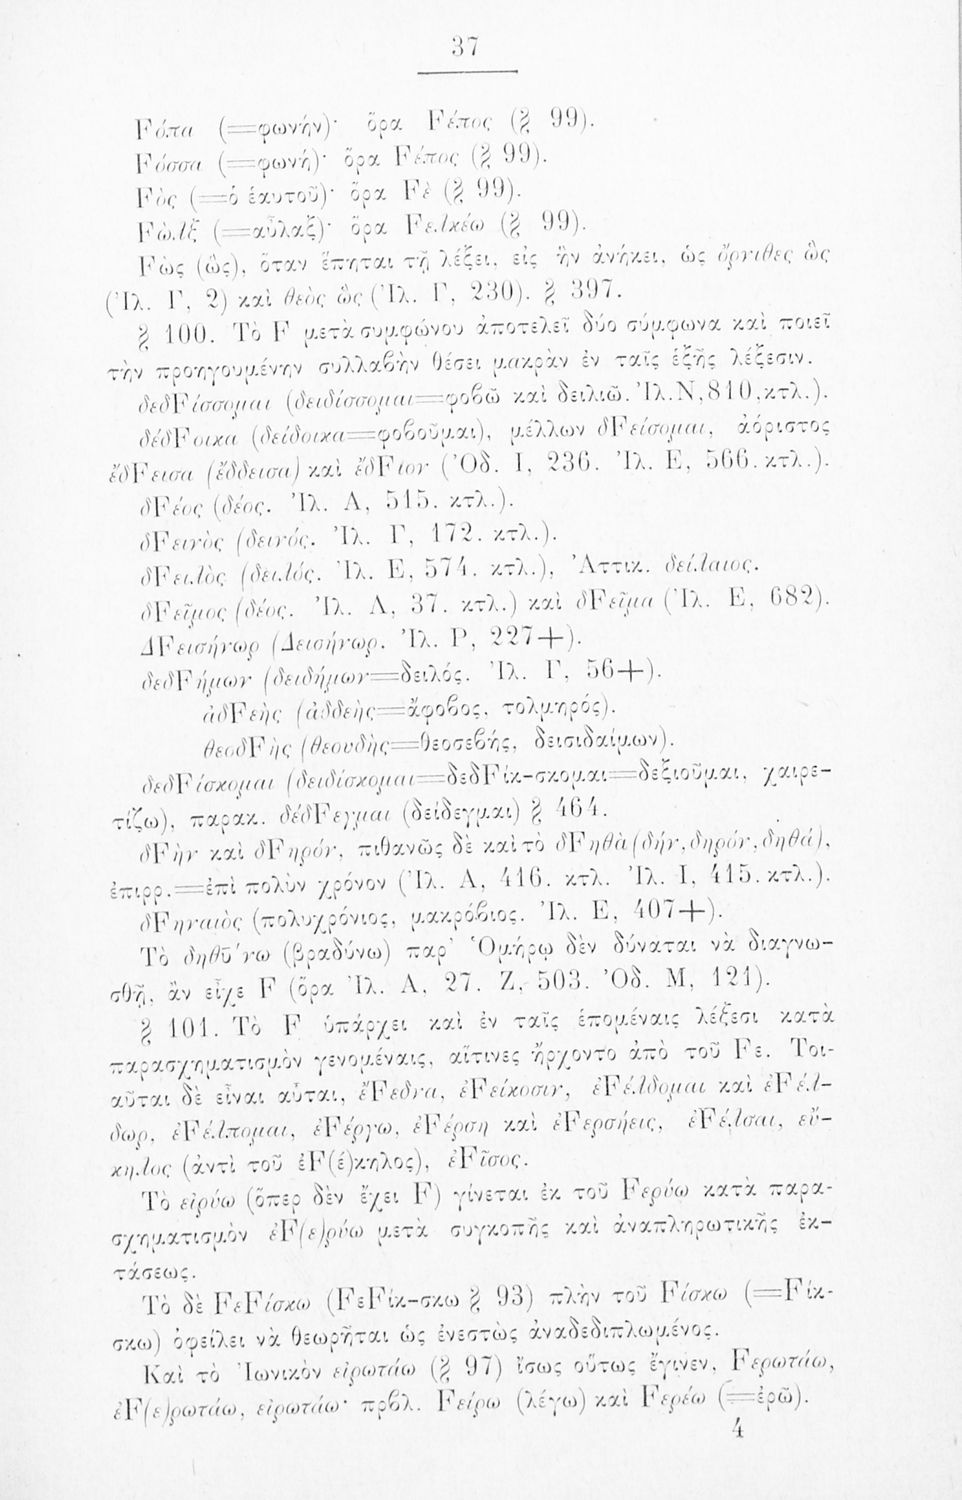 37
Fόπα (=φωνήν)· ὅρα Fέπος (§ 99).
Fόσσα (=φωνή)· ὅρα Fέπος (§ 99).
Fὸς (=ὁ ἑαυτοῦ)· ὅρα Fὲ (§ 99).
Fῶλξ (=αὖλαξ)· ὅρα Fελκέω (§ 99).
Fὼς (ὥς), ὅταν ἕπηται τῇ λέξει, εἰς ἣν ἀνήκει, ὡς ὄρνιθες ὣς
(Ἰλ. Γ, 2) καὶ θεὸς ὣς (Ἰλ. Γ, 230). § 397.
§ 100. Τὸ F μετὰ συμφώνου ἀποτελεῖ δύο σύμφωνα καὶ ποιεῖ
τὴν προηγουμένην συλλαβὴν θέσει μακρὰν ἐν ταῖς ἑξῆς λέξεσιν.
δεδFίσσομαι (δειδίσσομαι=φοβῶ καὶ δειλιῶ. Ἰλ. Ν, 810, κτλ.).
δέδFοικα (δείδοικα=φοβοῦμαι), μέλλων δFείσομαι, ἀόριστος
ἔδFεισα (ἔδδεισα) καὶ ἔδFιον (Ὀδ. Ι, 236. Ἰλ. Ε, 566. κτλ.).
δFέος (δέος. Ἰλ. Α, 515. κτλ.).
δFεινὸς (δεινός. Ἰλ. Γ, 172. κτλ.).
δFειλὸς (δειλός. Ἰλ. Ε, 574. κτλ.), Ἀττικ. δείλαιος.
δFεῖμος (δέος. Ἰλ. Λ, 37. κτλ.) καὶ δFεῖμα (Ἰλ. Ε, 682).
ΔFεισήνωρ (Δεισήνωρ. Ἰλ. Ρ, 227+).
δεδFήμων (δειδήμων=δειλός. Ἰλ. Γ, 56+).
ἀδFεὴς (ἀδδεὴς=ἄφοβος, τολμηρός).
θεοδFὴς (θεουδὴς=θεοσεβής, δεισιδαίμων).
δεδFίσκομαι (δειδίσκομαι=δεδFίκ-σκομαι=δεξιοῦμαι, χαιρε-
τίζω), παρακ. δέδFεγμαι (δείδεγμαι) § 464.
δFὴν καὶ δFηρόν, πιθανῶς δὲ καὶ τὸ δFηθὰ (δήν, δηρόν, δηθά),
ἐπιρρ.=ἐπὶ πολὺν χρόνον (Ἰλ. Α, 416. κτλ. Ἰλ. Ι, 415. κτλ.).
δFηναιὸς (πολυχρόνιος, μακρόβιος. Ἰλ. Ε, 407+).
Τὸ δηθύνω (βραδύνω) παρ' Ὁμήρῳ δὲν δύναται νὰ διαγνω-
σθῇ, ἂν εἶχε F (ὅρα Ἰλ. Α, 27. Ζ, 503. Ὀδ. Μ, 121).
§ 101. Τὸ F ὑπάρχει καὶ ἐν ταῖς ἑπομέναις λέξεσι κατὰ
παρασχηματισμὸν γενομέναις, αἵτινες ἤρχοντο ἀπὸ τοῦ Fε. Τοι-
αῦται δὲ εἶναι αὗται, ἔFεδνα, ἐFείκοσιν, ἐFέλδομαι καὶ ἐFέλ-
δωρ, ἐFέλπομαι, ἐFέργω, ἐFέρση καὶ ἐFερσήεις, ἐFέλσαι, εὔ-
κηλος (ἀντὶ τοῦ ἐF(έ)κηλος), ἐFῖσος.
Τὸ εἰρύω (ὅπερ δὲν ἔχει F) γίνεται ἐκ τοῦ Fερύω κατὰ παρα-
σχηματισμὸν ἐF(ε)ρύω μετὰ συγκοπῆς καὶ ἀναπληρωτικῆς ἐκ-
τάσεως.
Τὸ δὲ FεFίσκω (FεFίκ-σκω § 93) πλὴν τοῦ Fίσκω (=Fίκ-
σκω) ὀφείλει νὰ θεωρῆται ὡς ἐνεστὼς ἀναδεδιπλωμένος.
Καὶ τὸ Ἰωνικὸν εἰρωτάω (§ 97) ἴσως οὕτως ἔγινεν, Fερωτάω,
ἐF(ε)ρωτάω, εἰρωτάω· πρβλ. Fείρω (λέγω) καὶ Fερέω (=ἐρῶ).
4